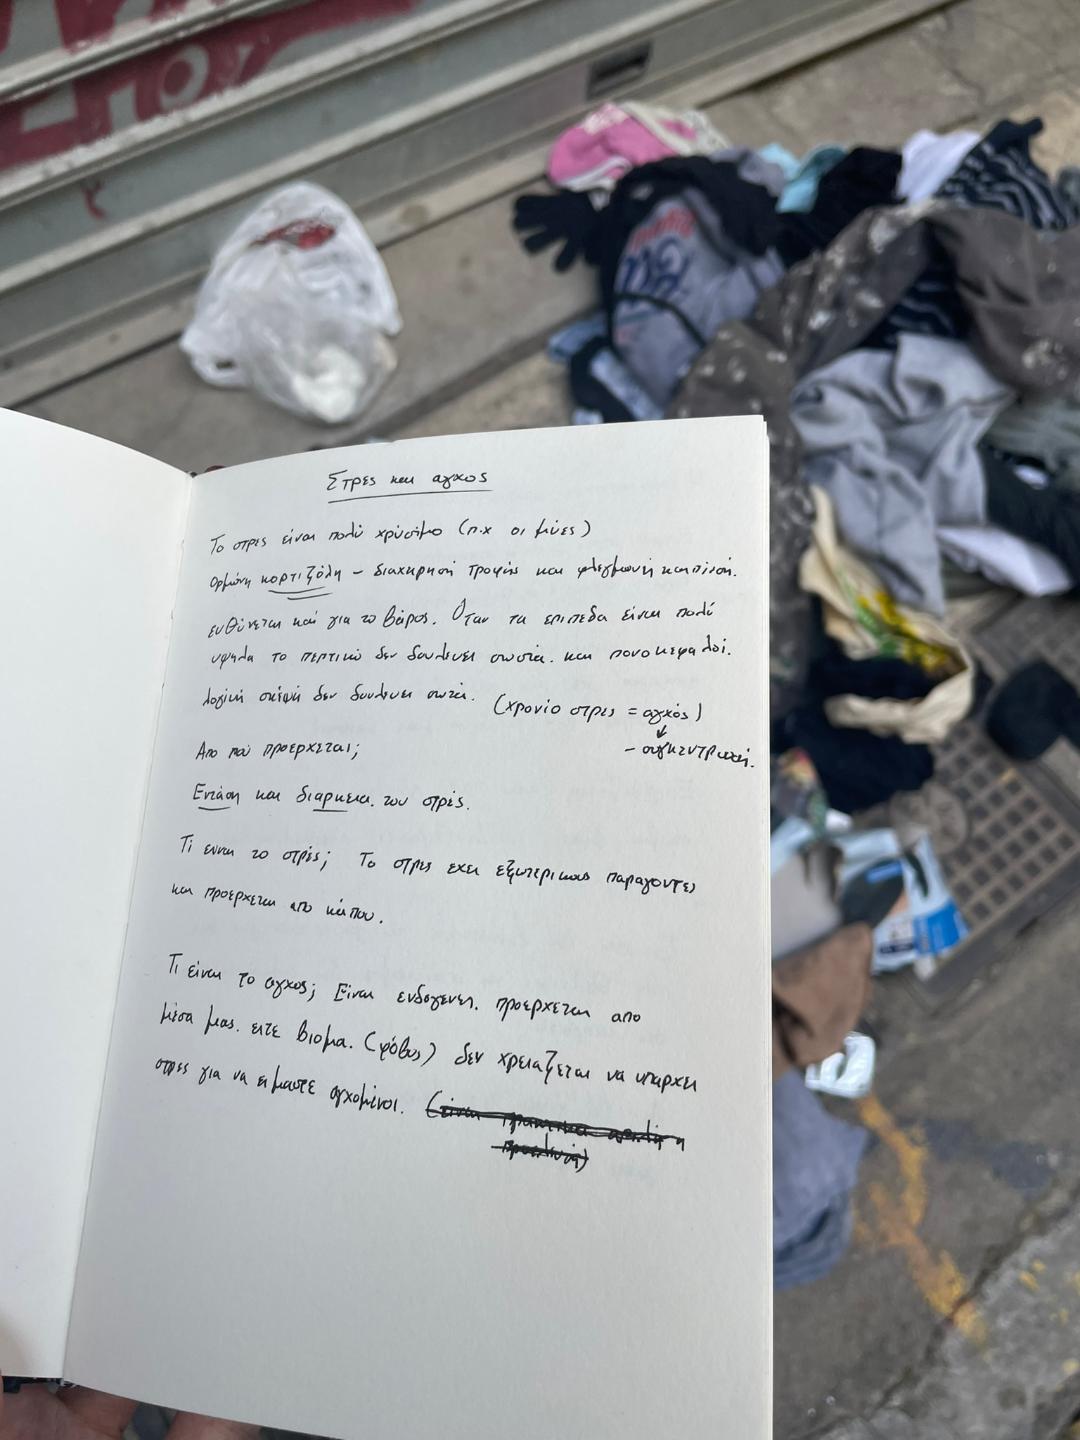 Στρες και αγχος
Το στρες είναι πολύ χρύσιμο (π.χ οι μύες)
Ορμόνη κορτιζόλη - διαχηρησή τροφής και φλεγμωνή καπνισή.
ευθύνεται και για το βάρος. Όταν τα επιπεδα είναι πολύ
υψηλα το πεπτικό δεν δουλευει σωστα. και πονοκεφαλοί.
λογική σκέψη δεν δουλευει σωτά.
(χρονίο στρες = αγχός)
- συγκεντρωσή.
Απο πού προερχεται;
Εντάση και διαρκεια. του στρές.
Τι ειναι το στρές; Το στρες εχει εξωτερικους παραγοντες
και προερχεται απο κάπου.
Τι είναι το αγχος; Είναι ενδογενες. προερχεται απο
μέσα μας. ειτε βιομα. (φόβος) δεν χρειαζεται να υπαρχει
στρες για να ειμαστε αγχομένοι.